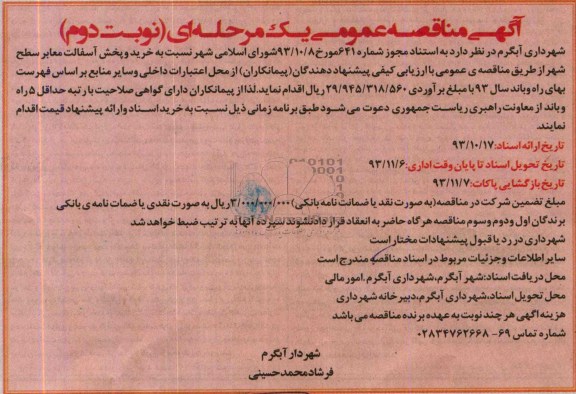 آگهی مناقصه عمومی یک مرحله‌ای (نوبت دوم)
شهرداری آبگرم در نظر دارد به استناد مجوز شماره ۶۴۱مورخ ۹۳/۱۰/۸شورای اسلامی شهر نسبت به خرید و پخش آسفالت معابر سطح
شهر از طریق مناقصه ی عمومی با ارزیابی کیفی پیشنهاد دهندگان (پیمانکاران) از محل اعتبارات داخلی وسایر منابع بر اساس فهرست
بهای راه وباند سال ۹۳ با مبلغ برآوردی ۲۹/۹۴۵/۳۱۸/۵۶۰ ریال اقدام نماید.لذا از پیمانکاران دارای گواهی صلاحیت با رتبه حداقل ۵ راه
و باند از معاونت راهبری ریاست جمهوری دعوت می شود طبق برنامه زمانی ذیل نسبت به خرید اسناد وارائه پیشنهاد قیمت اقدام
نمایند.
تاریخ ارائه اسناد:۹۳/۱۰/۱۷
تاریخ تحویل اسناد تا پایان وقت اداری:۹۳/۱۱/۶
تاریخ بازگشایی پاکات:۹۳/۱۱/۷
مبلغ تضمین شرکت در مناقصه(به صورت نقد یا ضمانت نامه بانکی)۳/۰۰۰/۰۰۰/۰۰۰ریال به صورت نقدی یا ضمات نامه ی بانکی
برندگان اول ودوم وسوم مناقصه هرگاه حاضر به انعقاد قرار داد نشوند سپرده آنها به ترتیب ضبط خواهد شد
شهرداری در رد یا قبول پیشنهادات مختار است
سایر اطلاعات وجزئیات مربوط در اسناد مناقصه مندرج است
محل دریافت اسناد:شهر آبگرم،شهرداری آبگرم.امور مالی
محل تحویل اسناد،شهرداری آبگرم،دبیرخانه شهرداری
هزینه آگهی هر چند نوبت به عهده برنده مناقصه می باشد
شماره تماس ۶۹- ۰۲۸۳۴۷۶۲۶۶۸
شهردار آبگرم
فرشادمحمدحسینی